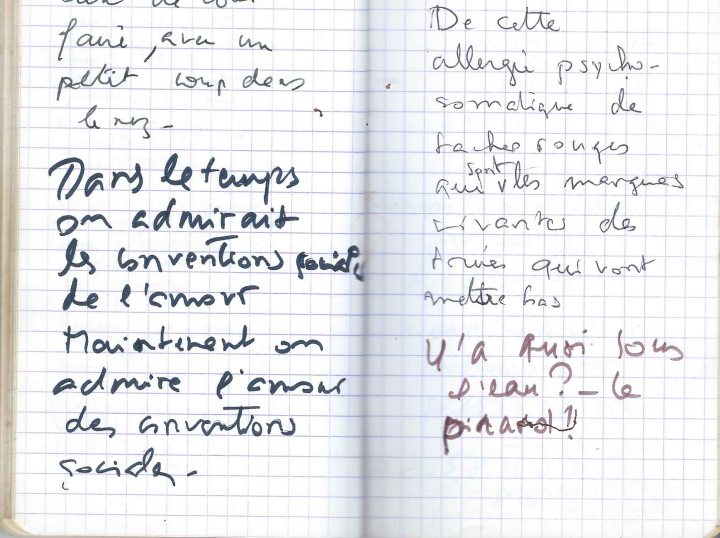 faire, avec un
petit coup dans
le nez -
Dans le temps
on admirait
les conventions sociales
de l'amour
Maintenant on
admire l'amour
des conventions
sociales -
De cette
allergie psycho-
somatique de
taches rouges
qui sont les marques
vivantes des
qui vont
mettre bas
Y'a quoi sous
l'eau? - le